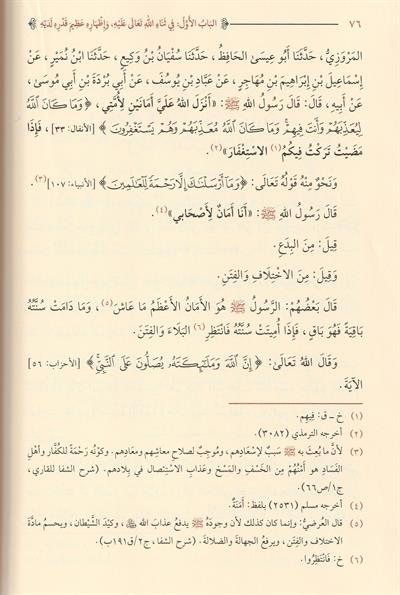 ٧٦ البَابُ الأَوَّلُ: فِي ثَنَاءِ اللهِ تَعَالَى عَلَيْهِ، وَإِظْهَارِهِ عَظِيمَ قَدْرِهِ لَدَيْهِ
المَرْوَزِيُّ، حَدَّثَنَا أَبُو عِيسَى الحَافِظُ، حَدَّثَنَا سُفْيَانُ بْنُ وَكِيعٍ، حَدَّثَنَا ابْنُ نُمَيْرٍ، عَنْ
إِسْمَاعِيلَ بْنِ إِبْرَاهِيمَ بْنِ مُهَاجِرٍ، عَنْ عَبَّادِ بْنِ يُوسُفَ، عَنْ أَبِي بُرْدَةَ بْنِ أَبِي مُوسَى،
عَنْ أَبِيهِ، قَالَ: قَالَ رَسُولُ اللهِ ﷺ: «أَنْزَلَ اللهُ عَلَيَّ أَمَانَيْنِ لِأُمَّتِي، ﴿وَمَا كَانَ اللَّهُ
لِيُعَذِّبَهُمْ وَأَنتَ فِيهِمْ وَمَا كَانَ اللَّهُ مُعَذِّبَهُمْ وَهُمْ يَسْتَغْفِرُونَ﴾ [الأنفال: ٣٣]، فَإِذَا
مَضَيْتُ تَرَكْتُ فِيكُمُ(١) الاسْتِغْفَارَ»(٢).
وَنَحْوٌ مِنْهُ قَوْلُهُ تَعَالَى: ﴿وَمَا أَرْسَلْنَاكَ إِلَّا رَحْمَةً لِّلْعَالَمِينَ﴾ [الأنبياء: ١٠٧](٣).
قَالَ رَسُولُ اللهِ ﷺ: «أَنَا أَمَانٌ لِأَصْحَابِي»(٤).
قِيلَ: مِنَ البِدَعِ.
وَقِيلَ: مِنَ الاخْتِلَافِ وَالفِتَنِ.
قَالَ بَعْضُهُمْ: الرَّسُولُ ﷺ هُوَ الأَمَانُ الأَعْظَمُ مَا عَاشَ(٥)، وَمَا دَامَتْ سُنَّتُهُ
بَاقِيَةً فَهُوَ بَاقٍ، فَإِذَا أُمِيتَتْ سُنَّتُهُ فَانْتَظِرِ(٦) البَلَاءَ وَالفِتَنَ.
وَقَالَ اللهُ تَعَالَى: ﴿إِنَّ اللَّهَ وَمَلَائِكَتَهُ يُصَلُّونَ عَلَى النَّبِيِّ﴾ [الأحزاب: ٥٦]
الآيَةَ.
(١) خ ـ ق: فِيهِم.
(٢) أخرجه الترمذي (٣٠٨٢).
(٣) لأنَّ ما بُعِثَ به ﷺ سَببٌ لإسْعادِهِم، ومُوجِبٌ لصلاحِ معاشِهِم ومعادِهِم. وكونُه رَحْمَةً للكُفَّارِ وأهْلِ
الفَسَادِ هو أَمْنُهُمْ مِن الخَسْفِ والمَسْخِ وعَذابِ الاسْتِئصالِ في بِلادِهم. (شرح الشفا للقاري،
ج١/ص٦٦).
(٤) أخرجه مسلم (٢٥٣١) بلفظ: أَمَنَةٌ.
(٥) قال العُرضيُّ: وإنما كان كذلك لأن وجودَهُ ﷺ يدفعُ عذابَ الله، وكيدَ الشَّيْطان، ويحسمُ مادَّةَ
الاختلاف والفِتَن، ويرفعُ الجهالةَ والضلالةَ. (شرح الشفا، ج٢/ق١٩١ب).
(٦) خ: فَانْتَظِرُوا.